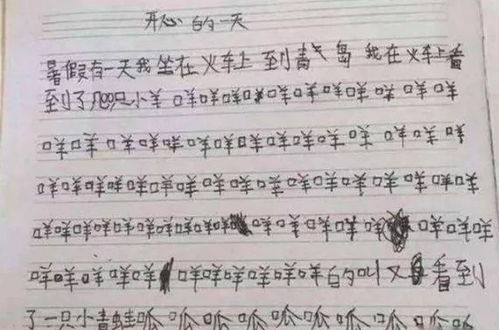 开心的一天
暑假有一天我坐在火车上到青岛我在火车上看
到了几百只小羊咩咩咩咩咩咩咩咩咩咩咩
咩咩咩咩咩咩咩咩咩咩咩咩咩咩咩咩
咩咩咩咩咩咩咩咩咩咩咩咩咩咩咩咩咩咩
咩咩咩咩咩咩咩咩咩咩咩咩咩咩咩咩
咩咩咩咩咩咩咩咩咩咩咩的叫又看到
了一只小青蛙呱呱呱呱呱呱呱